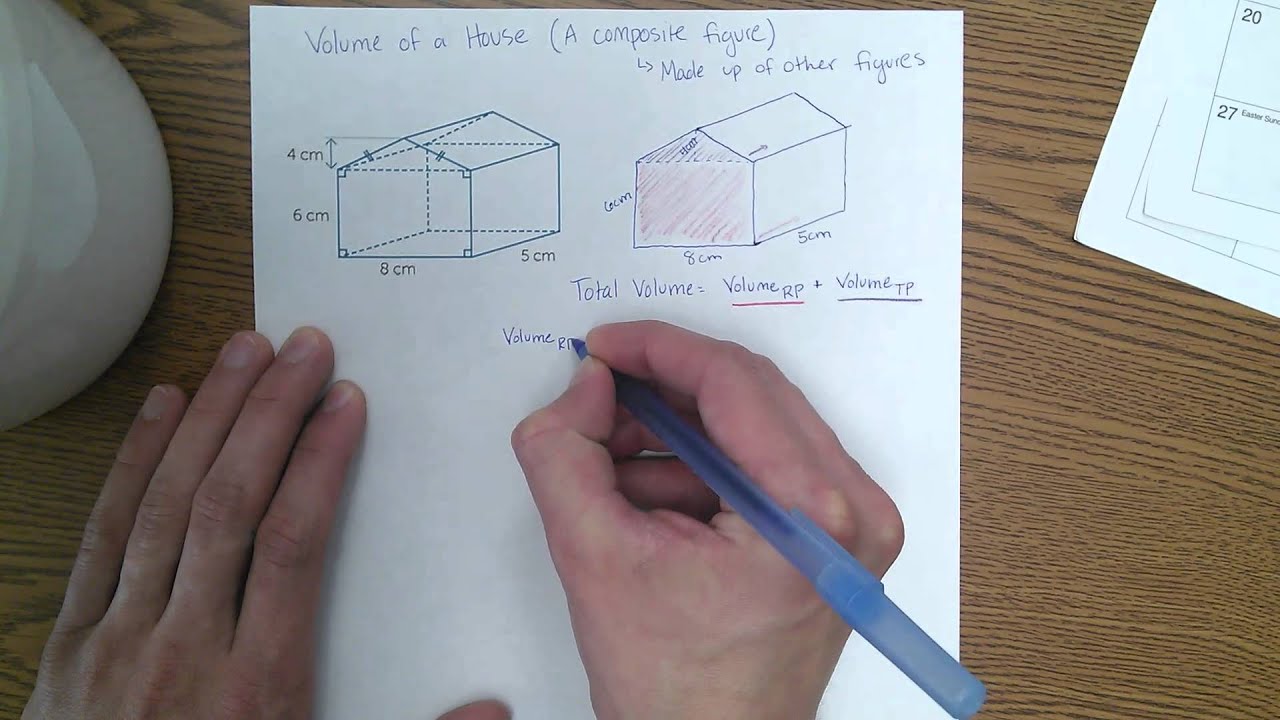 Volume of a House (A composite figure)
↳ Made up of other figures
4 cm
6 cm
8 cm
5 cm
4cm
6cm
8cm
5cm
Total Volume = Volume RP + Volume TP
Volume RP
20
27 Easter Sund